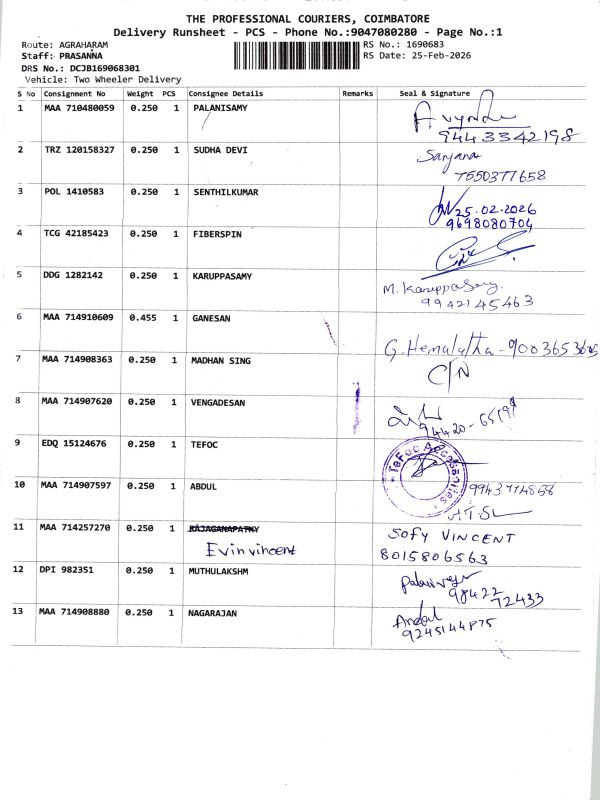 THE PROFESSIONAL COURIERS, COIMBATORE
Delivery Runsheet - PCS - Phone No.:9047080280 - Page No.:1
Route: AGRAHARAM RS No.: 1690683
Staff: PRASANNA RS Date: 25-Feb-2026
DRS No.: DCJB169068301
Vehicle: Two Wheeler Delivery
S No Consignment No Weight PCS Consignee Details Remarks Seal & Signature
1 MAA 710480059 0.250 1 PALANISAMY
9443342198
2 TRZ 120158327 0.250 1 SUDHA DEVI Sanjana
7550377658
3 POL 1410583 0.250 1 SENTHILKUMAR 25.02.2026
9698080704
4 TCG 42185423 0.250 1 FIBERSPIN
5 DDG 1282142 0.250 1 KARUPPASAMY M. Karuppasamy.
9942145463
6 MAA 714910609 0.455 1 GANESAN G. Hemalatha -
7 MAA 714908363 0.250 1 MADHAN SING C/N
8 MAA 714907620 0.250 1 VENGADESAN
9 EDQ 15124676 0.250 1 TEFOC TeFoc Accessories
10 MAA 714907597 0.250 1 ABDUL
11 MAA 714257270 0.250 1 RAJAGANAPATHY SOFY VINCENT
Evinvincent 8015806563
12 DPI 982351 0.250 1 MUTHULAKSHM
98422 72433
13 MAA 714908880 0.250 1 NAGARAJAN Andal
9245144875